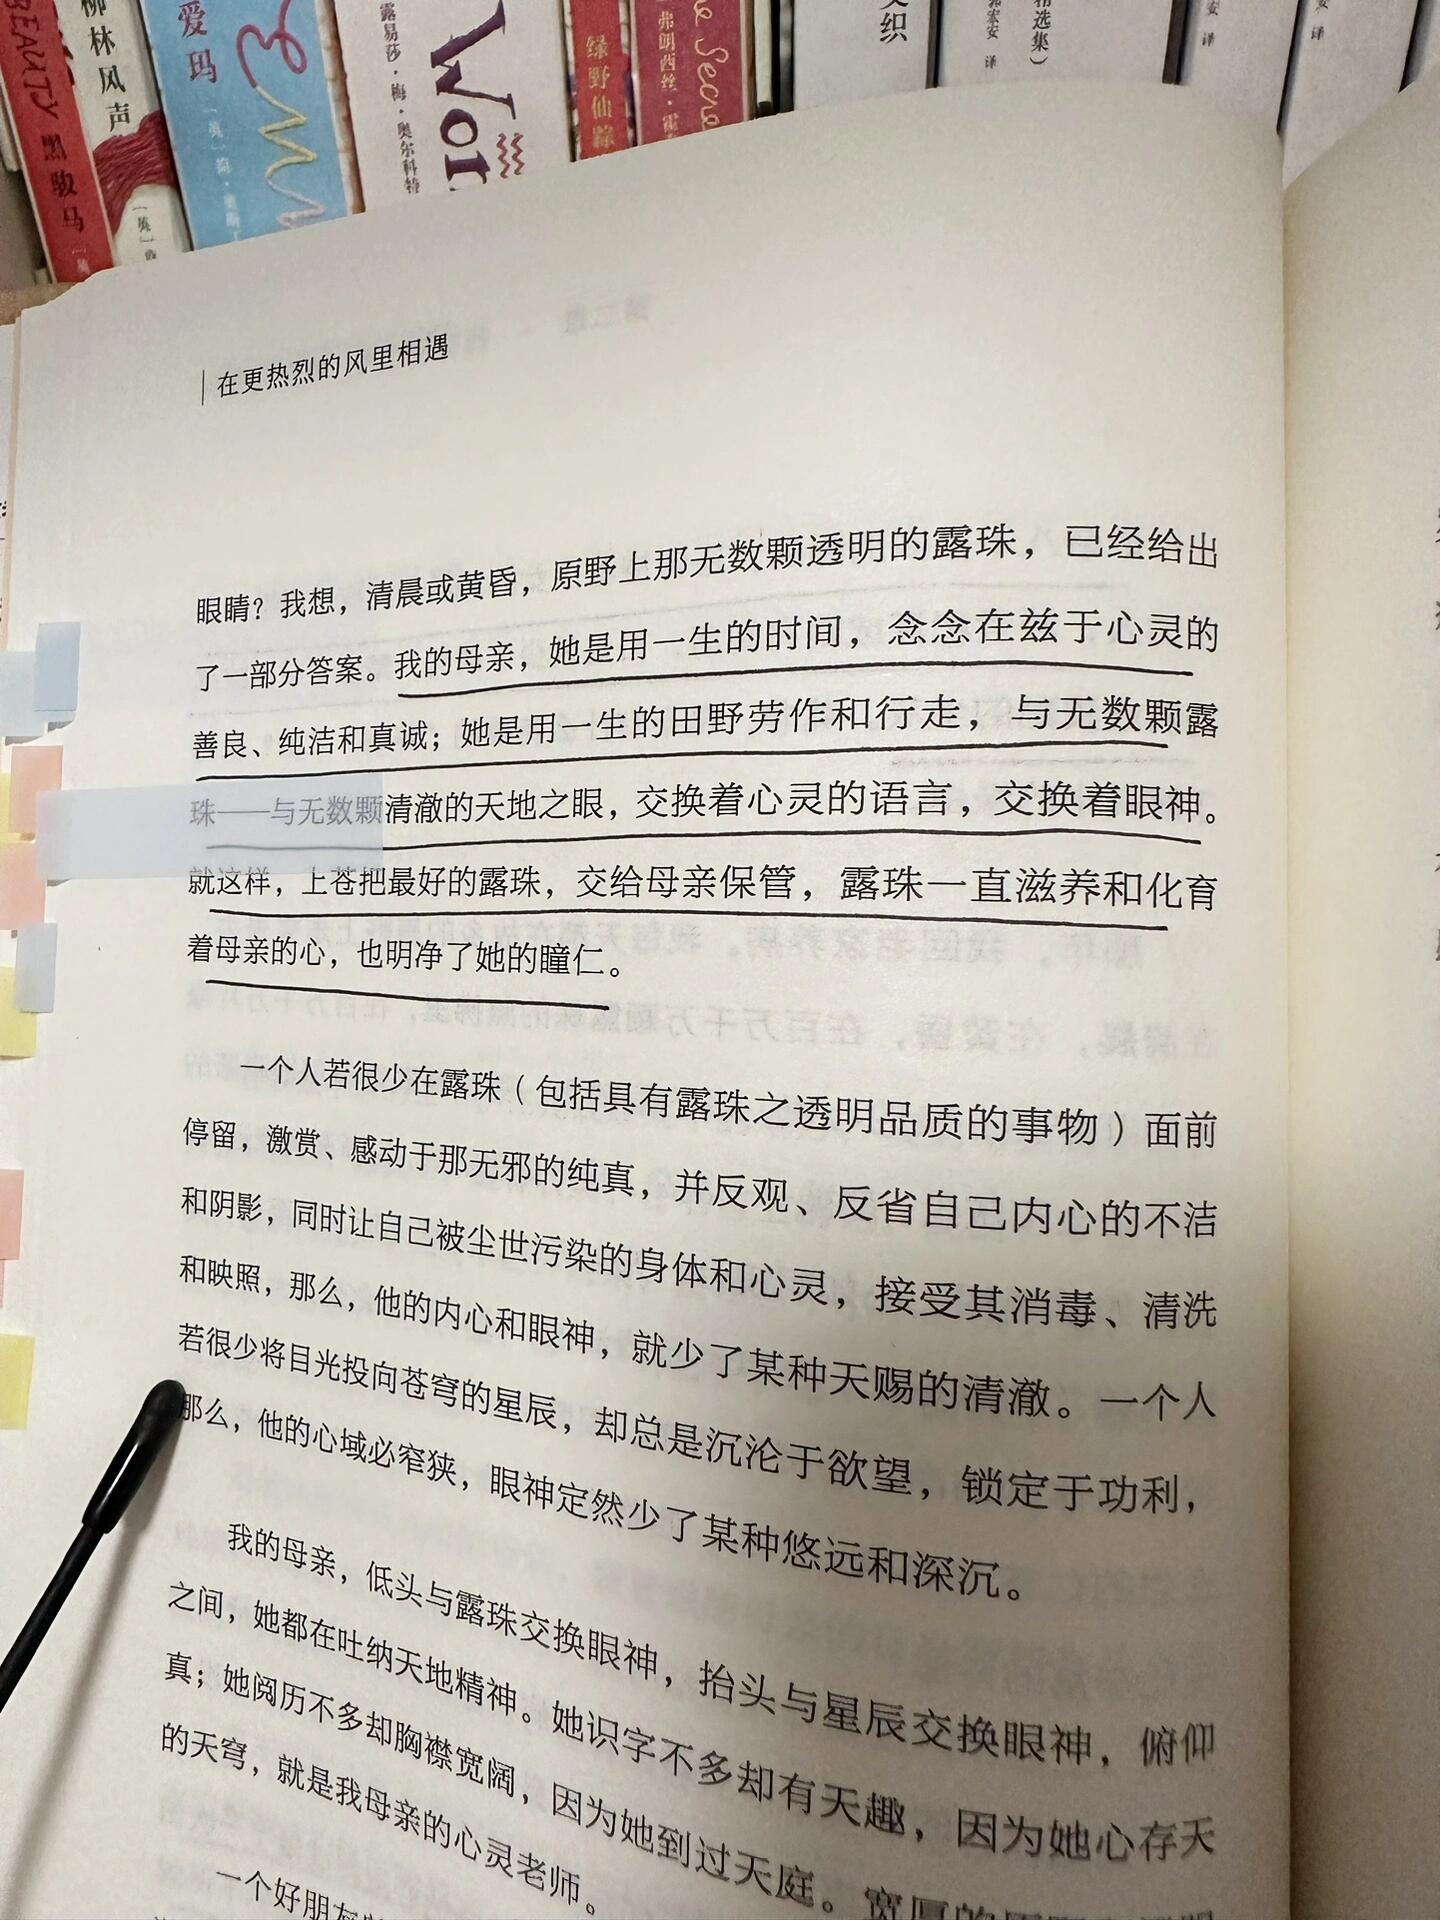 BEAUTY 黑骏马
柳林风声
爱玛
露易莎·梅·奥尔科特
绿野仙踪
Secre
精选集）
安 译
在更热烈的风里相遇
眼睛？我想，清晨或黄昏，原野上那无数颗透明的露珠，已经给出
了一部分答案。我的母亲，她是用一生的时间，念念在兹于心灵的
善良、纯洁和真诚；她是用一生的田野劳作和行走，与无数颗露
珠——与无数颗清澈的天地之眼，交换着心灵的语言，交换着眼神。
就这样，上苍把最好的露珠，交给母亲保管，露珠一直滋养和化育
着母亲的心，也明净了她的瞳仁。
一个人若很少在露珠（包括具有露珠之透明品质的事物）面前
停留，激赏、感动于那无邪的纯真，并反观、反省自己内心的不洁
和阴影，同时让自己被尘世污染的身体和心灵，接受其消毒、清洗
和映照，那么，他的内心和眼神，就少了某种天赐的清澈。一个人
若很少将目光投向苍穹的星辰，却总是沉沦于欲望，锁定于功利，
那么，他的心域必窄狭，眼神定然少了某种悠远和深沉。
我的母亲，低头与露珠交换眼神，抬头与星辰交换眼神，俯仰
之间，她都在吐纳天地精神。她识字不多却有天趣，因为她心存天
真；她阅历不多却胸襟宽阔，因为她到过天庭。宽厚的
的天穹，就是我母亲的心灵老师。
一个好朋友